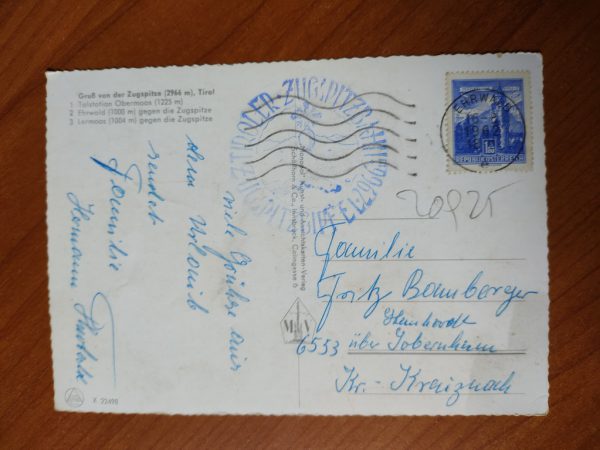 Gruß von der Zugspitze (2966 m), Tirol
1 Talstation Obermoos (1225 m)
2 Ehrwald (1000 m) gegen die Zugspitze
3 Lermoos (1004 m) gegen die Zugspitze
viele Grüße aus
dem Urlaub
sendet
Familie
Hermann
Monopol Kunst- und Ansichtskarten-Verlag
& Co., Innsbruck, Colingasse 6
EHRWALD
REPUBLIK ÖSTERREICH
20925
Familie
Fritz Bamberger
6553 über Sobernheim
Kr. - Kreuznach
F 22498